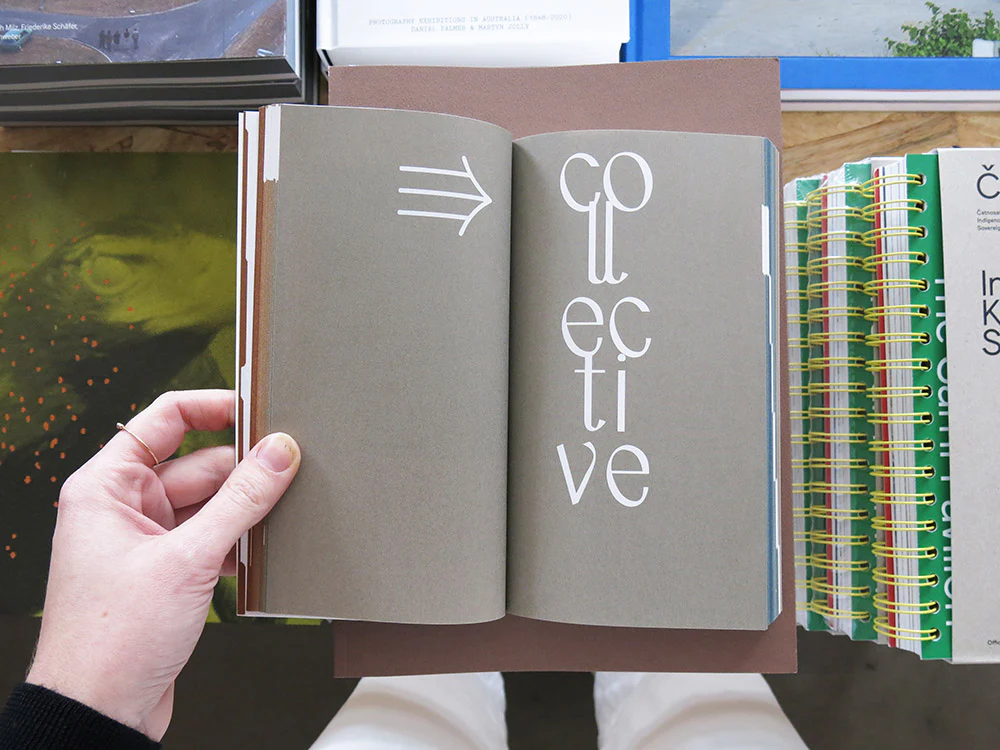 h Milz, Friederike Schäfer,
PHOTOGRAPHY EXHIBITIONS IN AUSTRALIA (1848-2020)
DANIEL PALMER & MARTYN JOLLY
co
ll
ec
ti
ve
The Sámi Pavilion
Č
Čatnosat
Indigeno
Sovereig
In
K
S
Offic